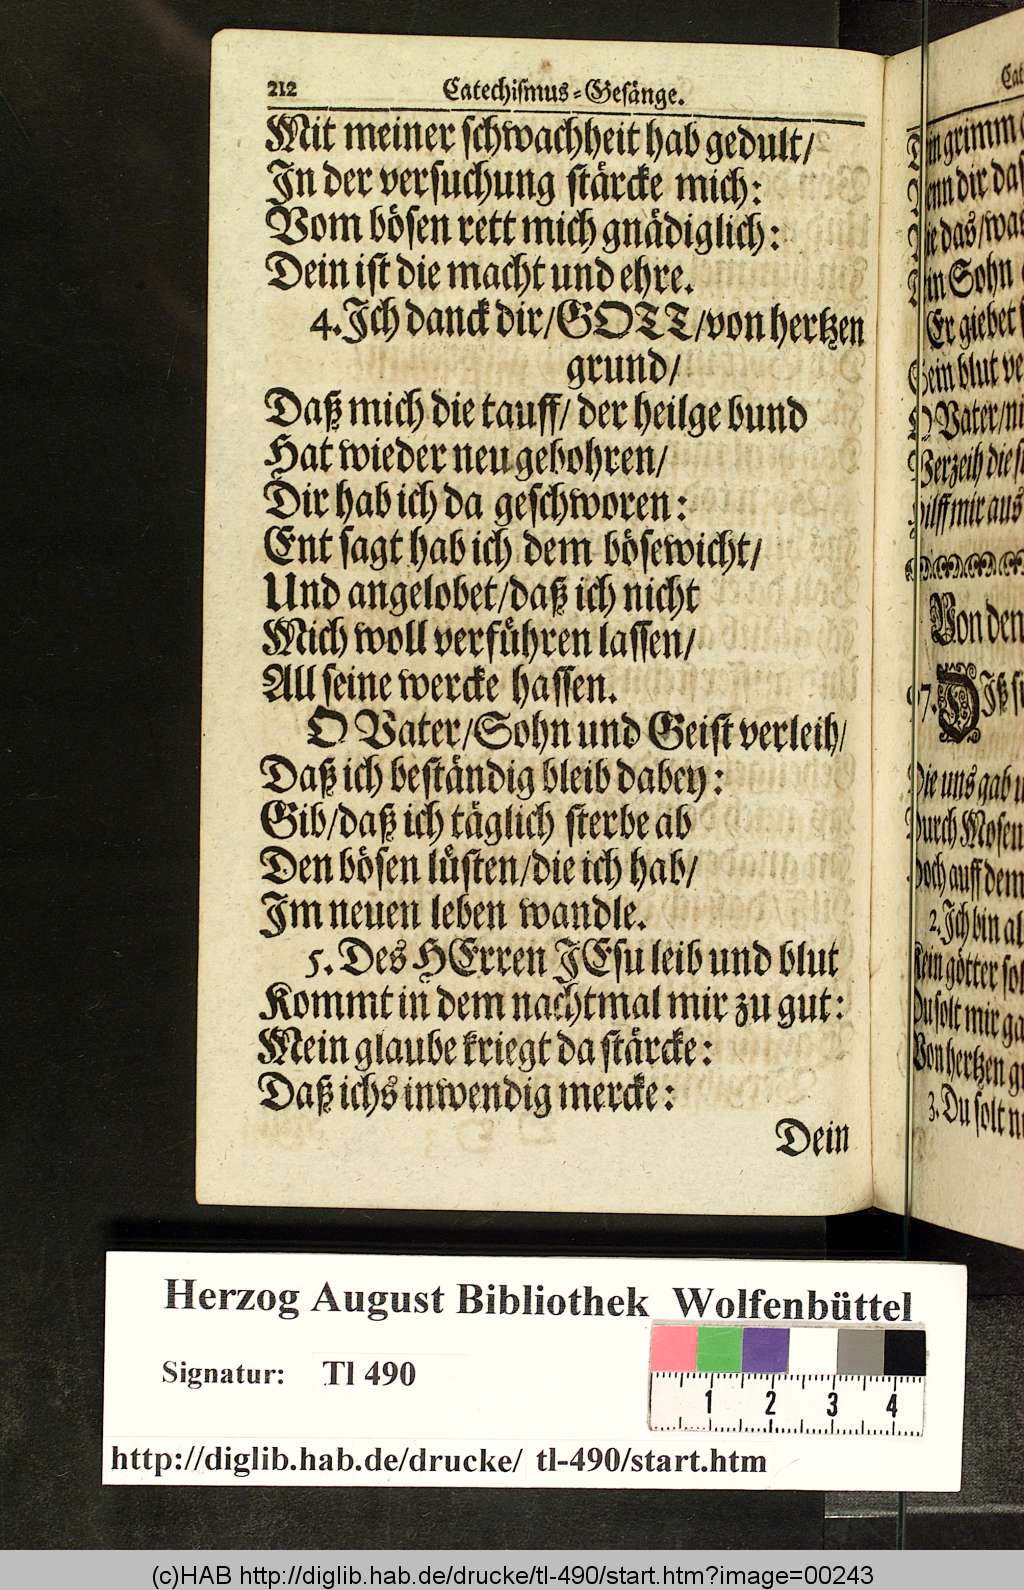 212 Catechismus-Gesänge.
Mit meiner schwachheit hab gedult/
In der versuchung stärcke mich:
Vom bösen rett mich gnädiglich:
Dein ist die macht und ehre.
4. Ich danck dir/GOTT/von hertzen
grund/
Daß mich die tauff/ der heilge bund
Hat wieder neu gebohren/
Dir hab ich da geschworen:
Entsagt hab ich dem bösewicht/
Und angelobet/daß ich nicht
Mich woll verführen lassen/
All seine wercke hassen.
O Vater/Sohn und Geist verleih/
Daß ich beständig bleib dabey:
Gib/daß ich täglich sterbe ab
Den bösen lüsten/die ich hab/
Im neuen leben wandle.
5. Des HErren JEsu leib und blut
Kommt in dem nachtmal mir zu gut:
Mein glaube kriegt da stärcke:
Daß ichs inwendig mercke:
Dein
grimm
dir das
das/was
Sohn
Er giebet
blut
Vater/
die
mir aus
Von den
uns gab
Mosen
auff dem
2. Ich bin
götter
solt mir
Von hertzen
3. Du solt
Herzog August Bibliothek Wolfenbüttel
Signatur: Tl 490
1 2 3 4
http://diglib.hab.de/drucke/ tl-490/start.htm
(c)HAB http://diglib.hab.de/drucke/tl-490/start.htm?image=00243